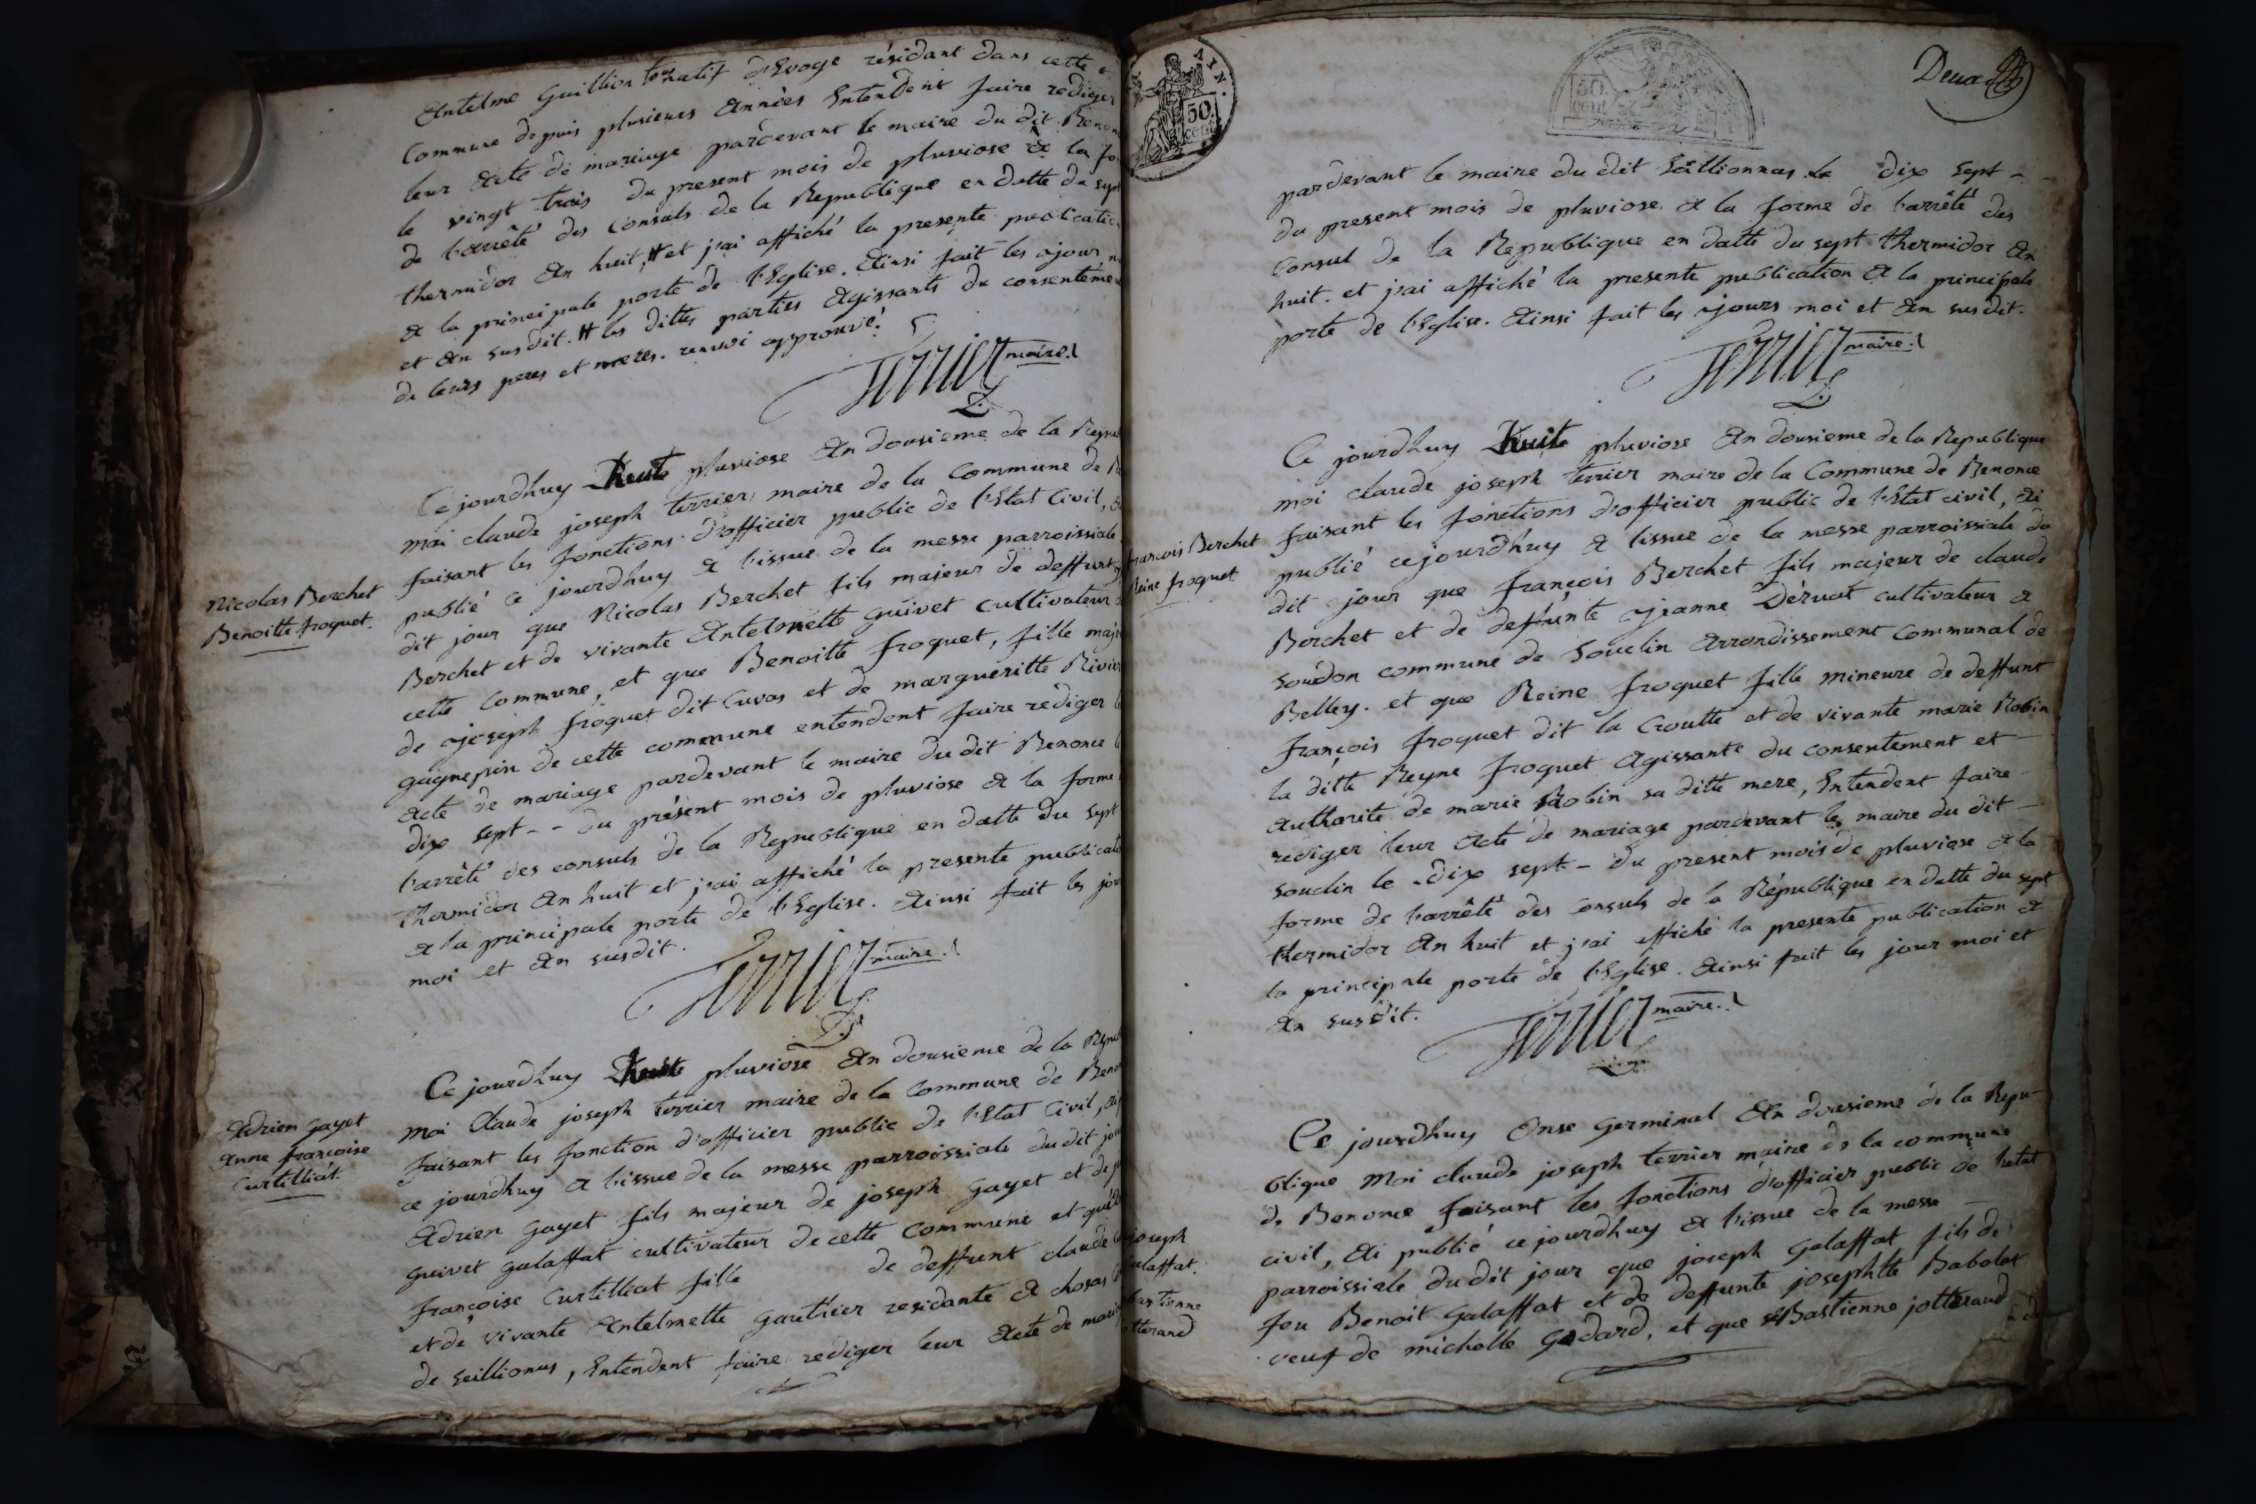 Antelme Guillion natif d'Evoge résidant dans cette
Commune depuis plusieurs Années Entendent faire rediger
leur Acte de mariage pardevant le maire du dit Benon
le vingt trois du present mois de pluviose a la fo
de l'arrêté des Consuls de la Republique en datte du sept
thermidor An huit, # et j'ai affiché la presente publicatio
a la principale porte de l'Eglise. Ainsi fait les jour m
et An susdit. # les dittes parties Agissants du consenteme
de leurs peres et meres. renvoi approuvé.
Terrier maire
Nicolas Berchet
Benoitte froquet.
Ce jourdhuy huit pluviose An dousieme de la Repu
moi claude joseph terrier maire de la Commune de B
faisant les fonctions d'officier public de l'Etat Civil,
publié ce jourdhuy a l'issue de la messe parroissiale
dit jour que Nicolas Berchet fils majeur de deffunt
Berchet et de vivante Antelmette Guivet cultivateur
cette Commune, et que Benoitte froquet, fille maje
de joseph froquet dit Cuvas et de margueritte Rivier
gagnepin de cette commune entendent faire rediger l
Acte de mariage pardevant le maire du dit Benonce
dix sept - - du présent mois de pluviose a la forme
l'arrêté des consuls de la Republique en datte du sept
thermidor An huit et j'ai affiché la presente publicati
a la principale porte de l'Eglise. Ainsi fait les jou
moi et An susdit.
Terrier maire
Adrien Gayet
Anne françoise
Curtilliat.
Ce jourdhuy huit pluviose An dousieme de la Repu
moi Claude joseph terrier maire de la Commune de Beno
faisant les fonction d'officier public de l'Etat Civil,
ce jourdhuy a l'issue de la messe parroissiale du dit jou
Adrien Gayet fils majeur de joseph Gayet et de
Guivet Galaffat cultivateur de cette Commune et qu'
françoise Curtilliat fille de deffunt claude
et de vivante Antelmette Gauthier residante a chosas
de Seillionas, Entendent faire rediger leur Acte de mari
AIN.
50.
cent.
50.
cent
Deux
pardevant le maire du dit Seillionnas le dix sept -
du present mois de pluviose a la forme de l'arrêté des
Consul de la Republique en datte du sept thermidor An
huit. et j'ai affiché la presente publication a la principale
porte de l'Eglise. Ainsi fait les jours moi et An susdit.
Terrier maire
françois Berchet
Reine froquet
Ce jourdhuy huit pluviose An dousieme de la Republique
moi claude joseph terrier maire de la Commune de Benonce
faisant les fonctions d'officier public de l'Etat civil, Ai
publié cejourdhuy a l'issue de la messe parroissiale du
dit jour que françois Berchet fils majeur de claude
Berchet et de deffunte jeanne Dérvat cultivateur a
soudon commune de Souclin Arrondissement Communal de
Belley. et que Reine froquet fille mineure de deffunt
françois froquet dit la Croutte et de vivante marie Robin
la ditte Reyne froquet Agissante du consentement et
Authorité de marie Robin sa ditte mere, Entendent faire
rediger leur Acte de mariage pardevant le maire du dit -
Souclin le dix sept - du present mois de pluviose a la
forme de l'arrêté des Consuls de la République en datte du sept
thermidor An huit et j'ai affiché la presente publication a
la principale porte de l'Eglise. Ainsi fait les jour moi et
An susdit.
Terrier maire
joseph
Galaffat.
bastienne
jotterand
Ce jourdhuy Onse Germinal An dousieme de la Repu-
blique moi claude joseph terrier maire de la commune
de Benonce faisant les fonctions d'officier public de l'etat
civil, Ai publié cejourdhuy a l'issue de la messe
parroissiale du dit jour que joseph Galaffat fils de
feu Benoit Galaffat et de deffunte josephtte Babolat
veuf de michelle Godard, et que Bastienne jotterand